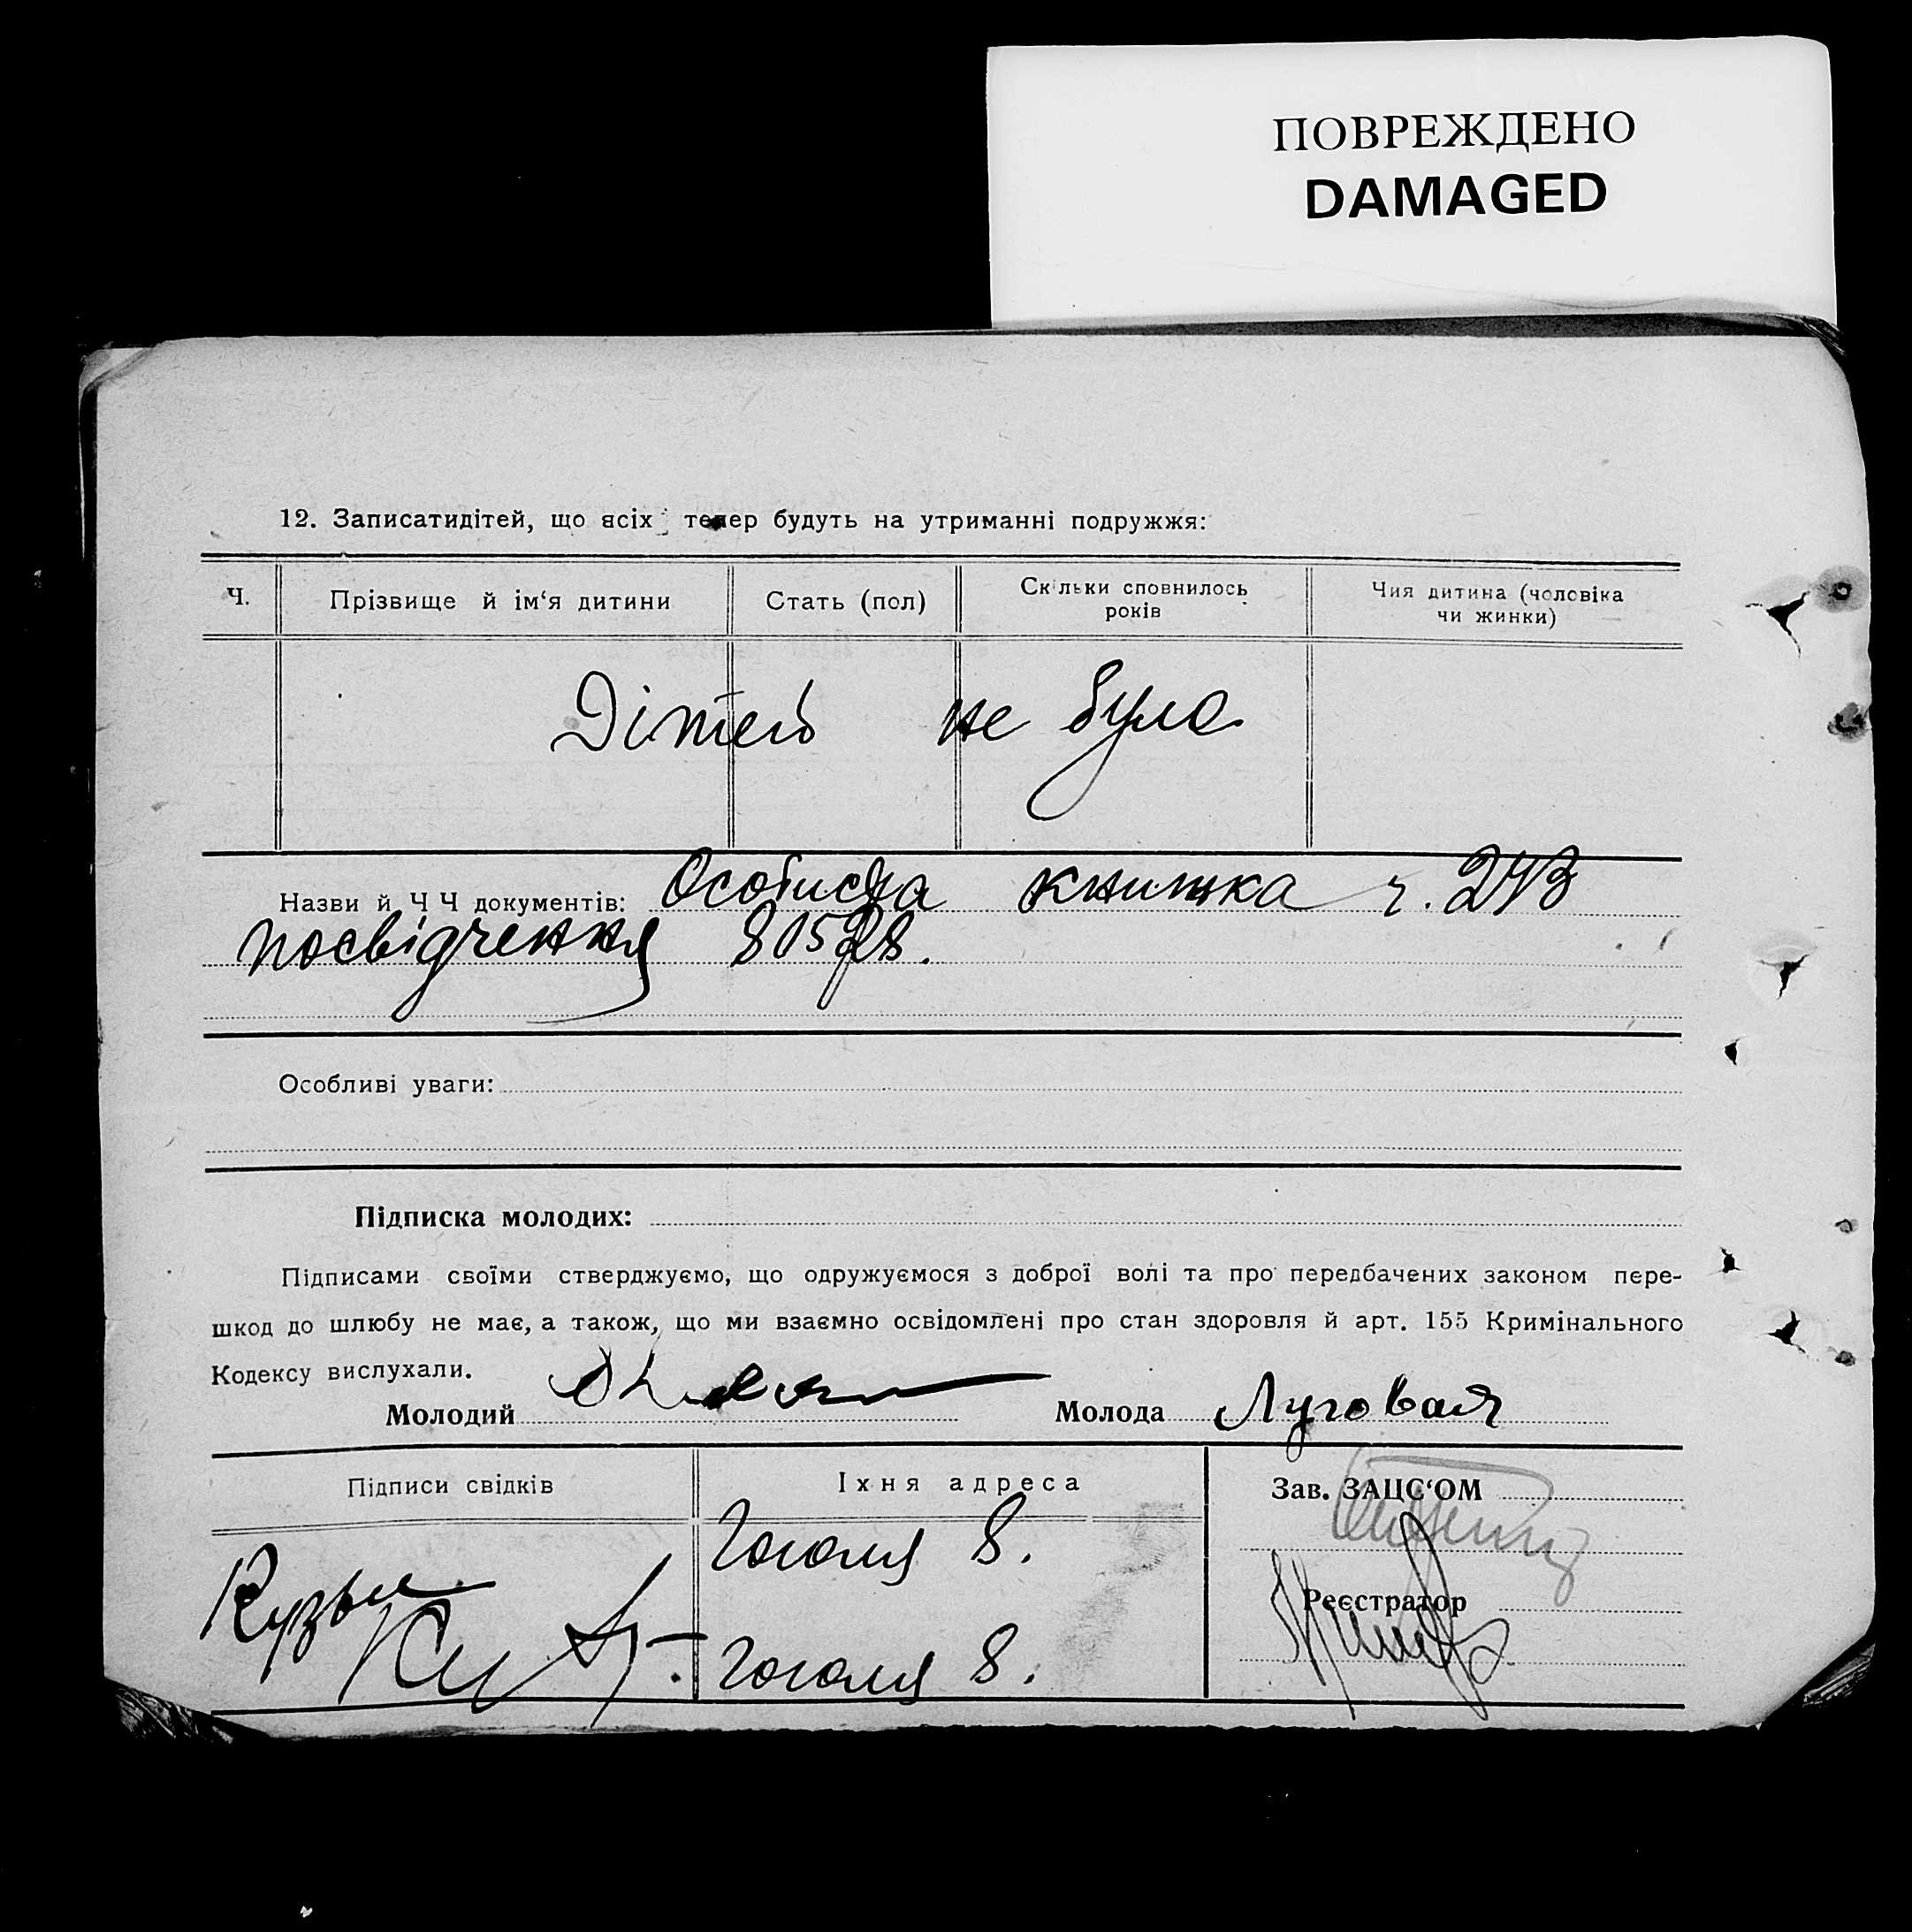 ПОВРЕЖДЕНО
DAMAGED
12. Записатидітей, що всіх тепер будуть на утриманні подружжя:
Ч.
Прізвище й ім‘я дитини
Стать (пол)
Скільки сповнилось
років
Чия дитина (чоловіка
чи жинки)
Дітей не було
Назви й Ч Ч документів: Особиста книжка ч. 243
посвідчення
Особливі уваги:
Підписка молодих:
Підписами своїми стверджуємо, що одружуємося з доброї волі та про передбачених законом пере-
шкод до шлюбу не має, а також, що ми взаємно освідомлені про стан здоровля й арт. 155 Кримінального
Кодексу вислухали.
Молодий
Молода Луговая
Підписи свідків
Їхня адреса
Зав. ЗАЦС‘ОМ
Гоголя 8.
Реєстратор
Гоголя 8.